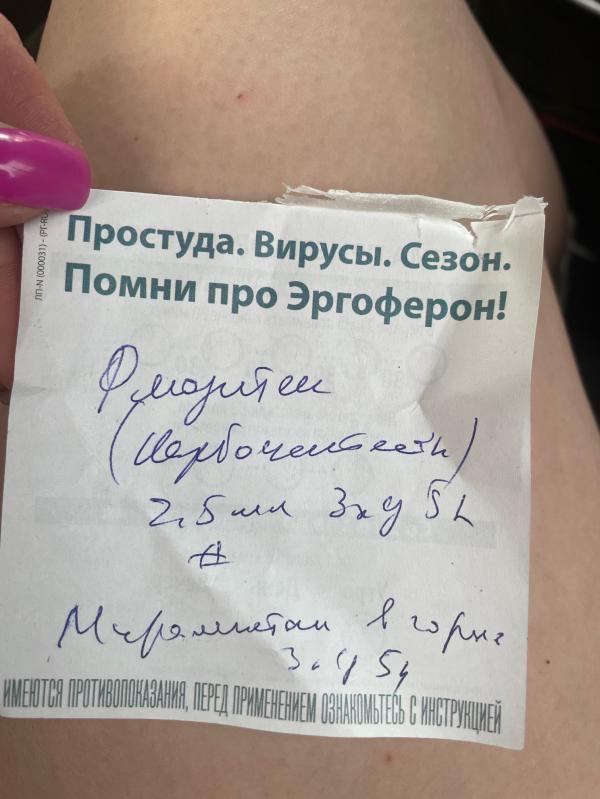 ЛП-N (000031) - (РГ-RU
Простуда. Вирусы. Сезон.
Помни про Эргоферон!
(Карбоцистеин)
2,5 мл 3хд 5д
в горло
ИМЕЮТСЯ ПРОТИВОПОКАЗАНИЯ, ПЕРЕД ПРИМЕНЕНИЕМ ОЗНАКОМЬТЕСЬ С ИНСТРУКЦИЕЙ